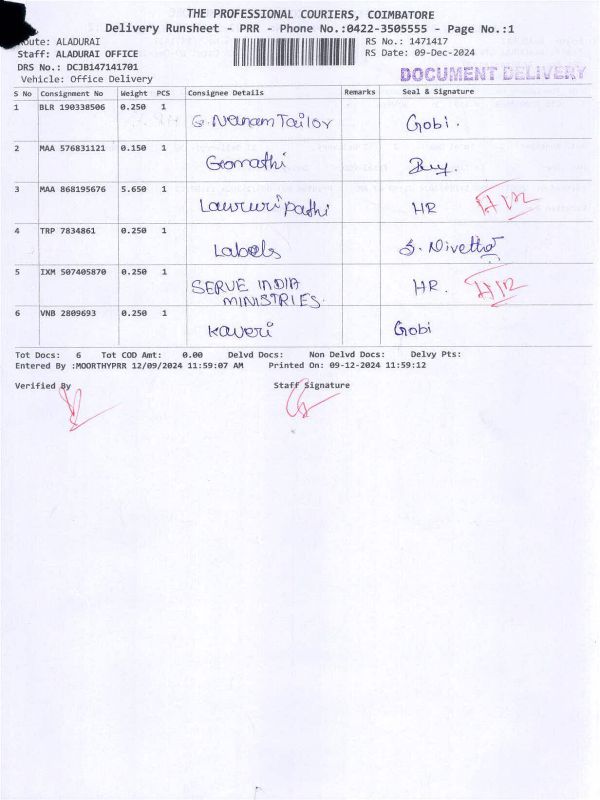 THE PROFESSIONAL COURIERS, COIMBATORE
Delivery Runsheet - PRR - Phone No.:0422-3505555 - Page No.:1
Route: ALADURAI RS No.: 1471417
Staff: ALADURAI OFFICE RS Date: 09-Dec-2024
DRS No.: DCJB147141701 DOCUMENT DELIVERY
Vehicle: Office Delivery
S No Consignment No Weight PCS Consignee Details Remarks Seal & Signature
1 BLR 190338506 0.250 1 Tailor Gobi.
2 MAA 576831121 0.150 1 Gomathi
3 MAA 868195676 5.650 1 HR HR
4 TRP 7834861 0.250 1 Labels S. Nivetha
5 IXM 507405870 0.250 1 SERVE INDIA MINISTRIES. HR. HR
6 VNB 2809693 0.250 1 Kaveri Gobi
Tot Docs: 6 Tot COD Amt: 0.00 Delvd Docs: Non Delvd Docs: Delvy Pts:
Entered By :MOORTHYPRR 12/09/2024 11:59:07 AM Printed On: 09-12-2024 11:59:12
Verified By Staff Signature